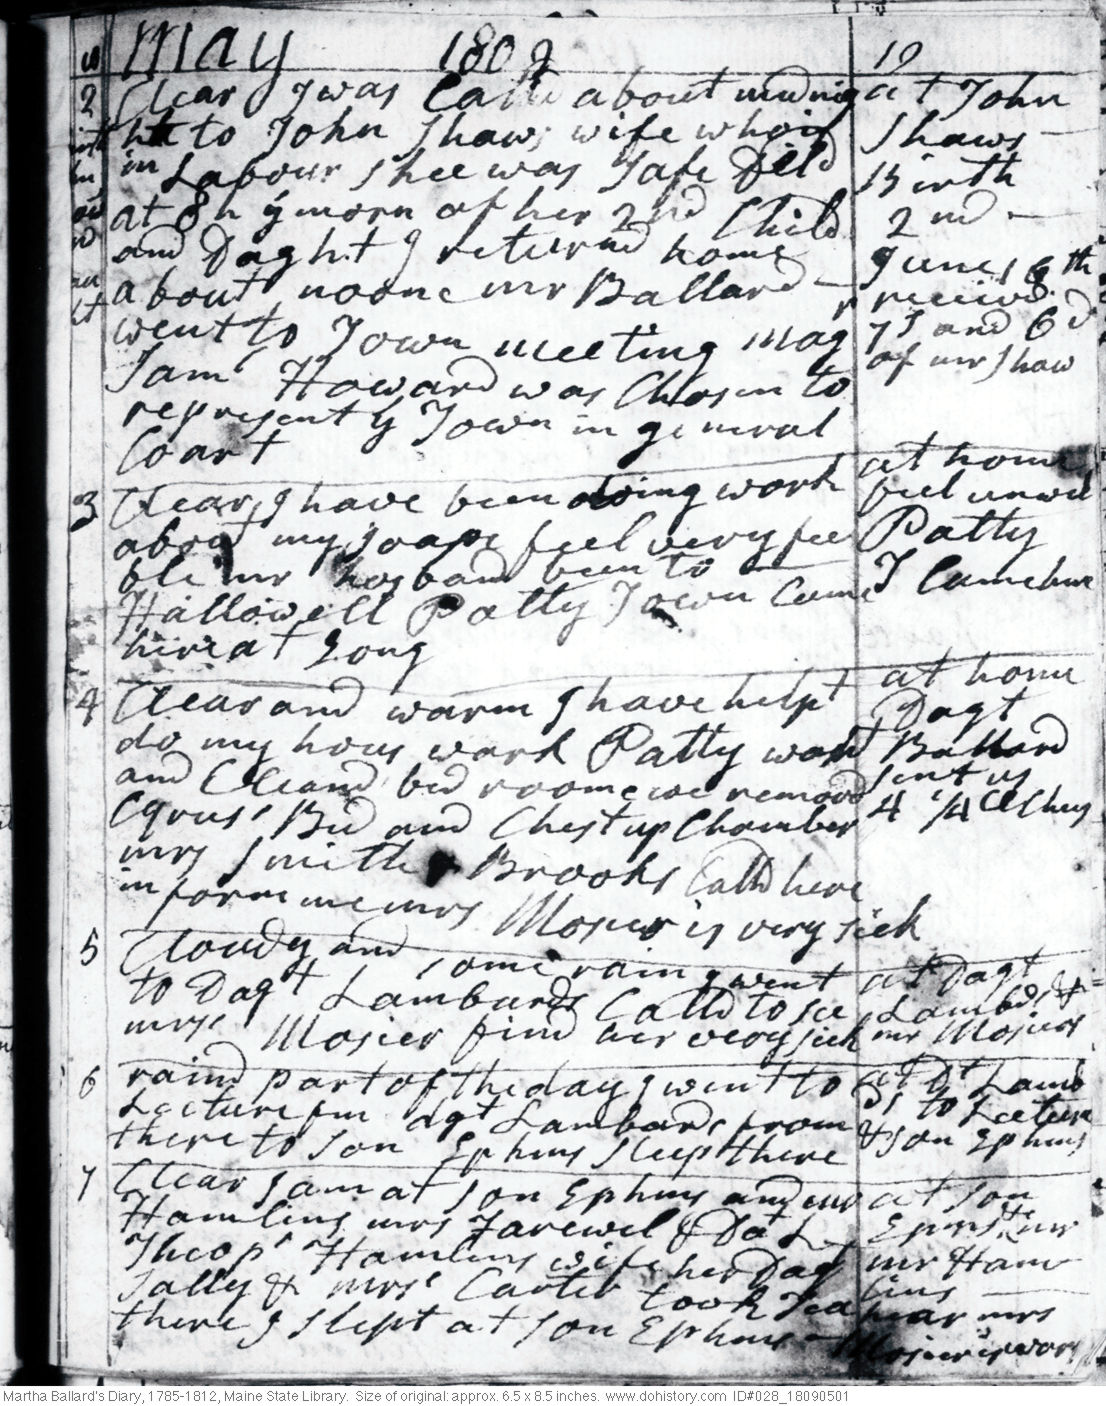 May 1802 19
2 Clear I was Calld about midnig
ht to John Shaws wife who is
in Labour Shee was Safe Deld
at 8 h y morn of her 2nd Child
and Daght I returnd home
about noone mr Ballard
went to Town meeting
Saml Howard was Chosen to
represent y Town in general
Coart
at John
Shaws
Birth
2nd
June 16th
receivd
7s and 6d
of mr Shaw
3 Clear, I have been doing work
about my soape feel very fee
ble mr hosband been to
Hallowell Patty Town Came
here at
at home
feel unwel
Patty
T Came here
4 Clear and warm I have helpt
do my hous work Patty washt
and Cleand bed roome we removd
Cyrus' Bed and Chest up Chamber
mrs Smith & Brooks Calld here
inform me mrs Mosier is very sick
at home
Dagt
Ballard
sent us
4 1/4
5 Cloudy and some rain I went
to Dagt Lambards Calld to see
mrs Mosier find her very sick
at Dagt
Lambds &
mr Mosiers
6 raind part of the day I went to
Lecture fm dgt Lambards from
there to son Ephms sleep there
at Dt Lamb
ds to Lecture
& son Ephms
7 Clear I am at son Ephms and mr
Hamlins mrs Farewel & Dat L
Theops Hamlins wife her Dag
Sally & mrs Carter took Tea
there I slept at son Ephms
at son
Ephms
mr Ham
lins
near mrs
Mosier is wors
Martha Ballard's Diary, 1785-1812, Maine State Library. Size of original: approx. 6.5 x 8.5 inches. www.dohistory.com ID#028_18090501